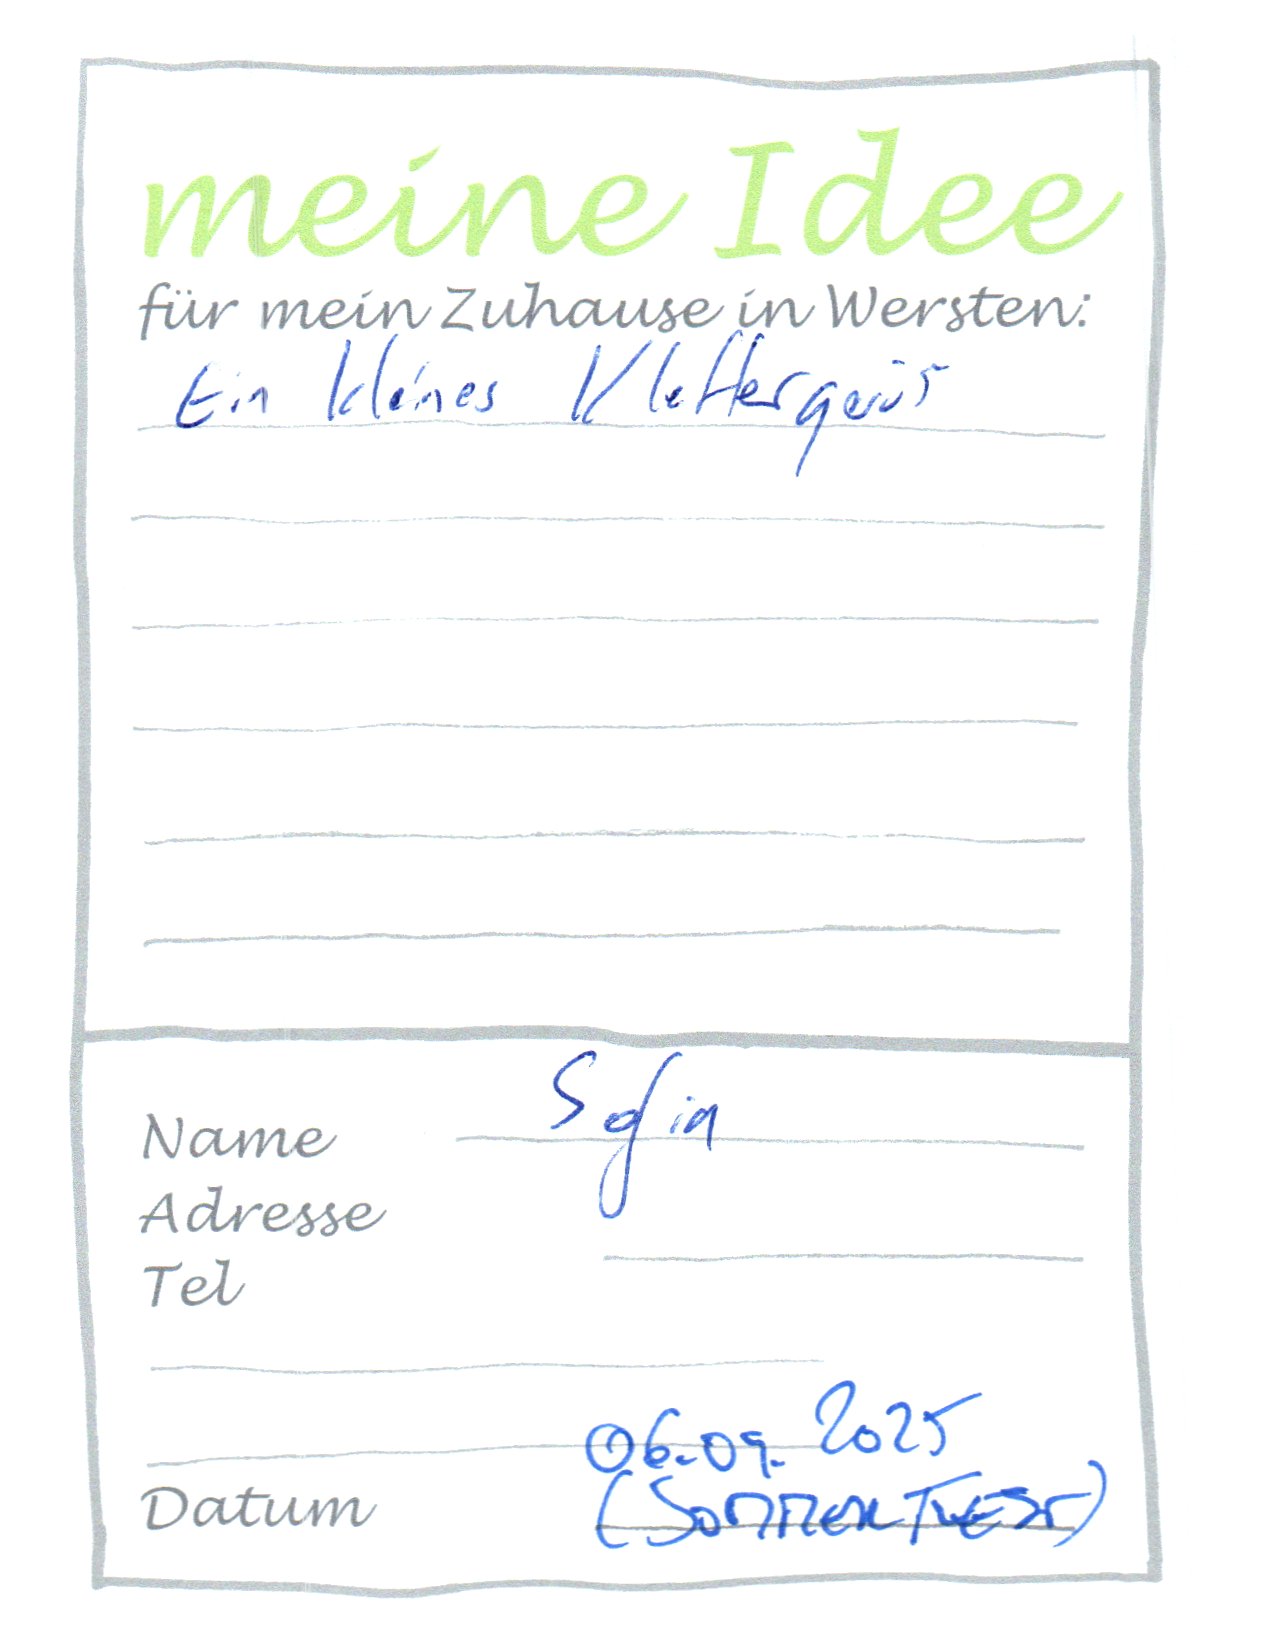 meine Idee
für mein Zuhause in Wersten:
Ein kleines Klettergerüst
Name Sofia
Adresse
Tel
06.09.2025
Datum (SOMMERFEST)